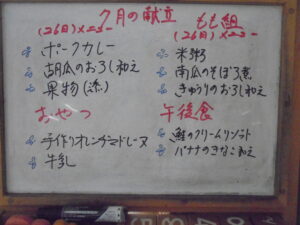 7月の献立
(26日)メニュー
ポークカレー
胡瓜のおろし和え
果物(添)
おやつ
手作りオレンジマドレーヌ
牛乳
もも組
(26日)メニュー
米粥
南瓜のそぼろ煮
きゅうりのおろし和え
午後食
鮭のクリームリゾット
バナナのきなこ和え